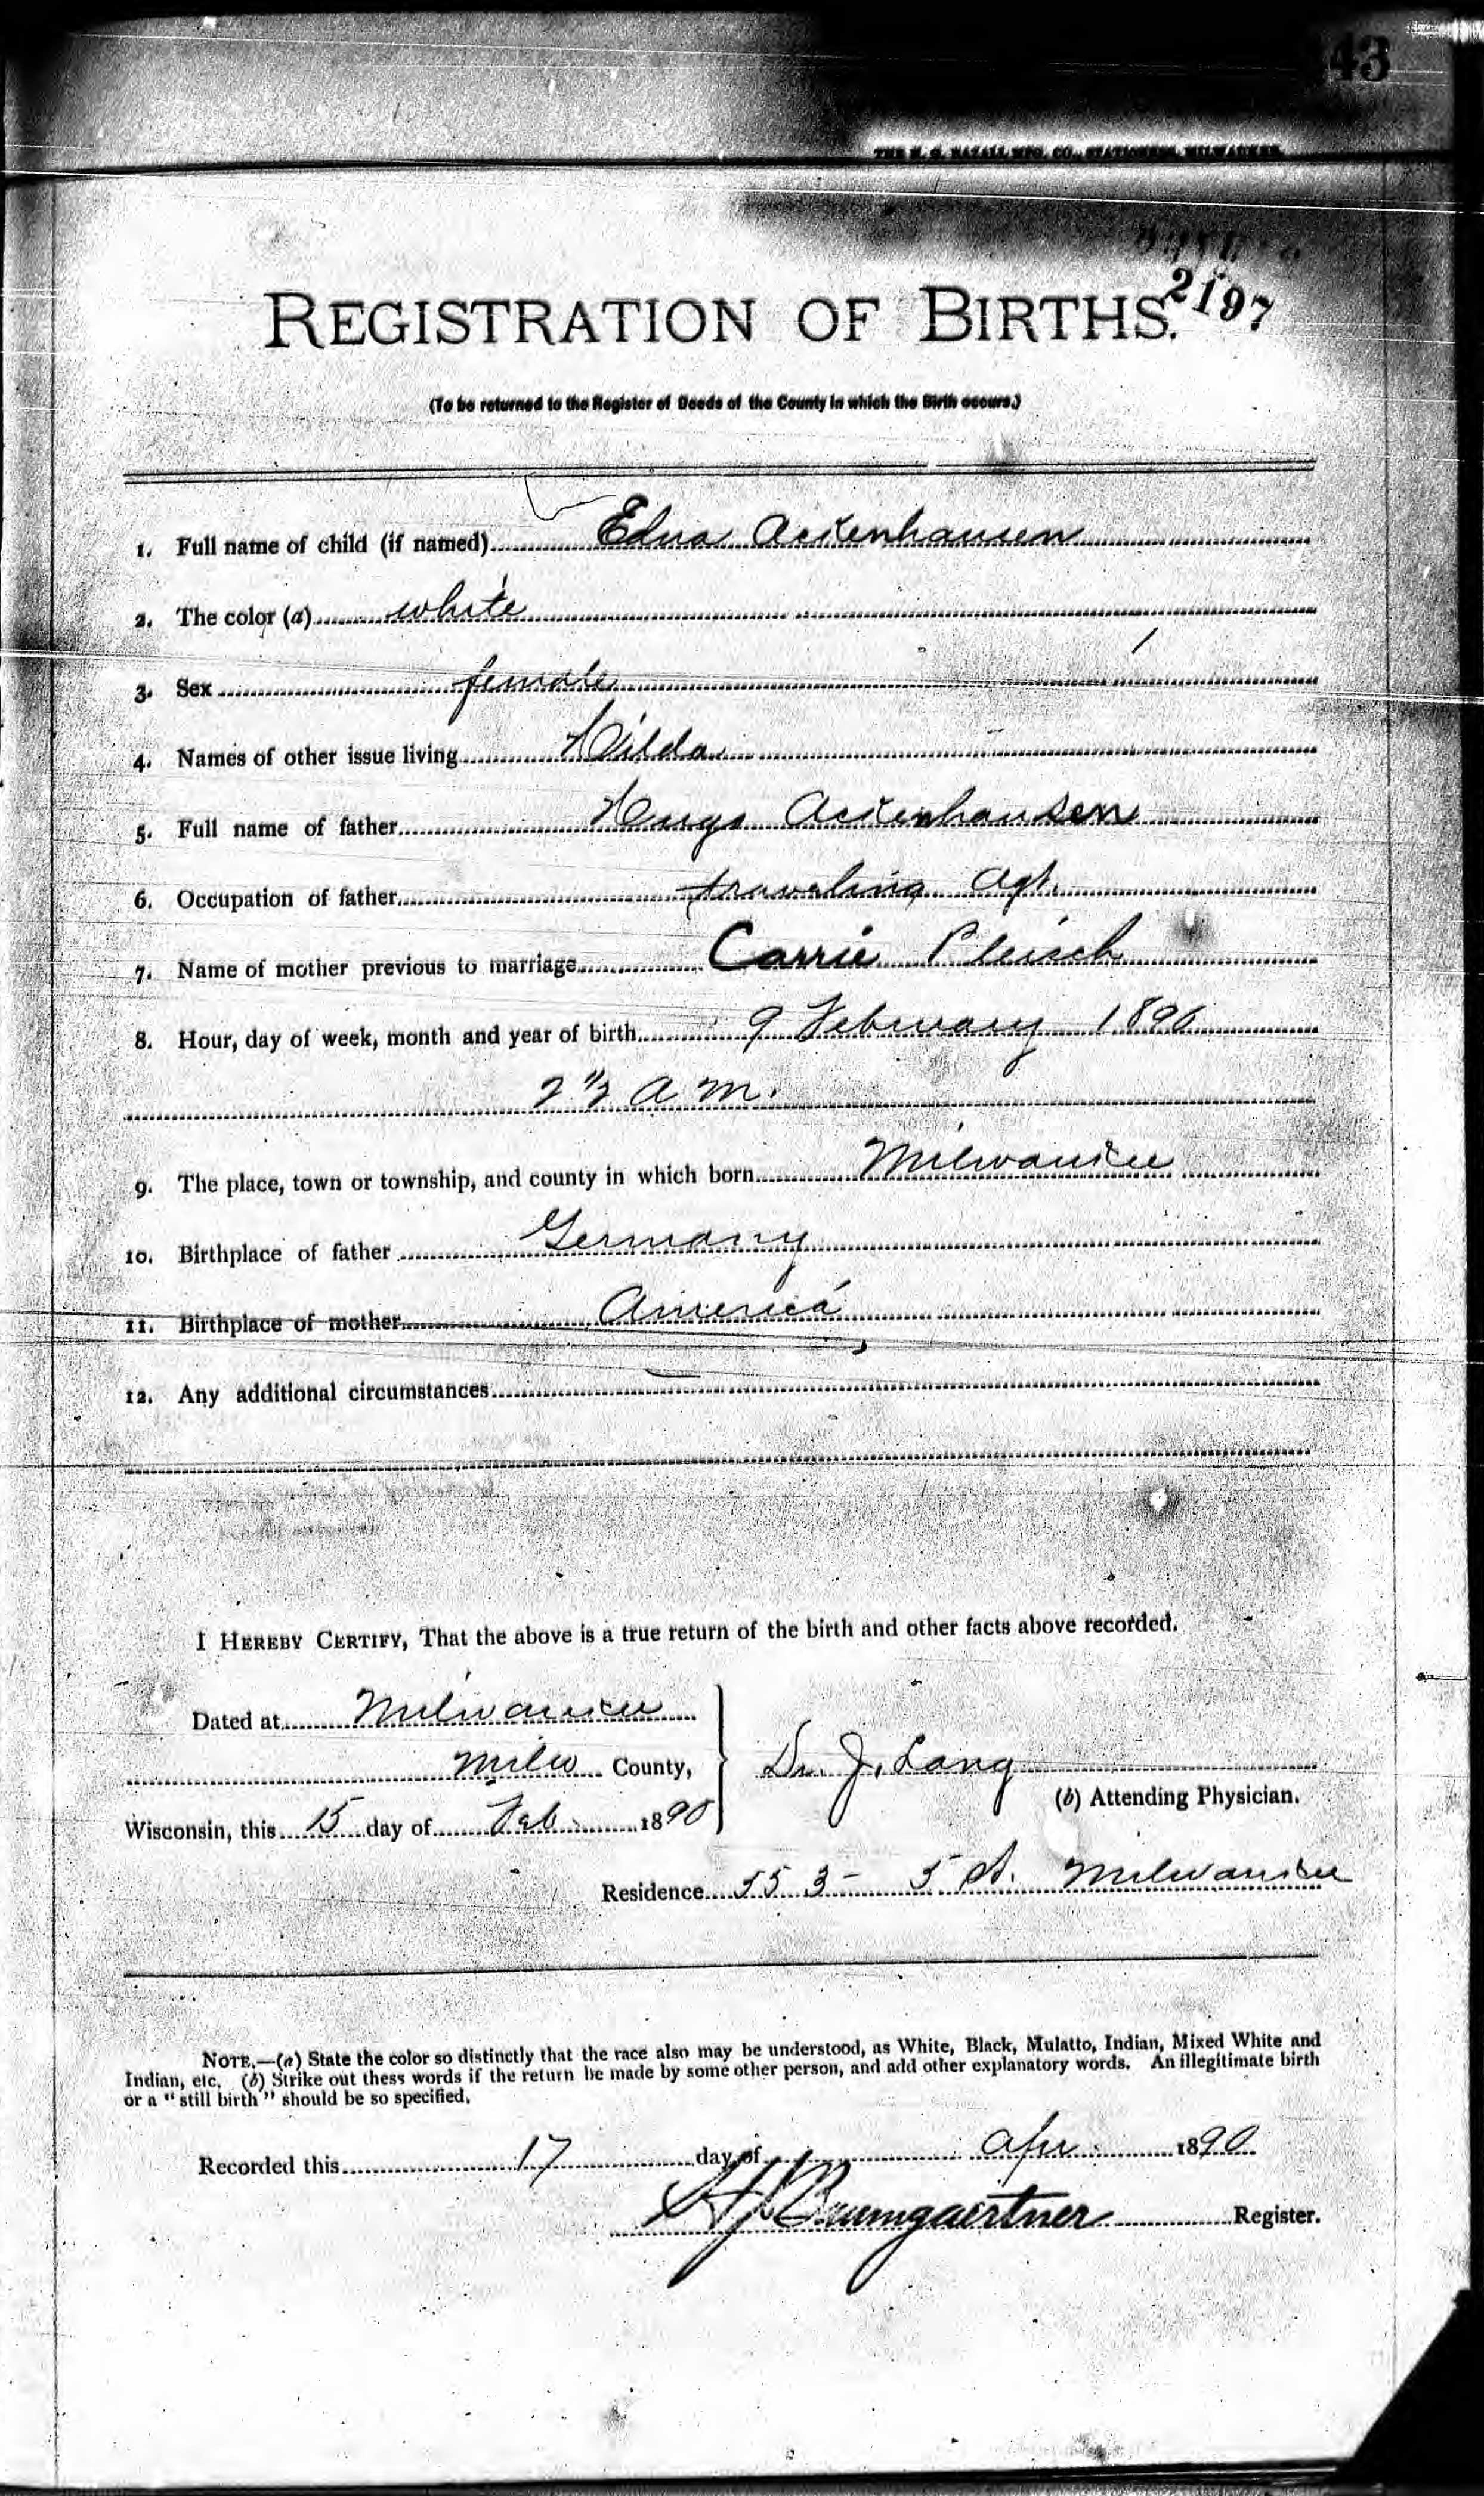 43
THE H. G. RAZALL MFG. CO., STATIONERS, MILWAUKEE.
2197
REGISTRATION OF BIRTHS.
(To be returned to the Register of Deeds of the County in which the Birth occurs.)
1. Full name of child (if named) Edna Ackenhausen
2. The color (a) white
3. Sex female
4. Names of other issue living Hilda
5. Full name of father Hugo Ackenhausen
6. Occupation of father traveling Agt.
7. Name of mother previous to marriage Carrie Pleisch
8. Hour, day of week, month and year of birth 9 February 1890
2 ½ A M.
9. The place, town or township, and county in which born Milwaukee
10. Birthplace of father Germany
11. Birthplace of mother America
12. Any additional circumstances
I HEREBY CERTIFY, That the above is a true return of the birth and other facts above recorded.
Dated at Milwaukee
Milw County,
Dr. J. Lang
(b) Attending Physician.
Wisconsin, this 15 day of Feb. 1890
Residence 553 - 5 St. Milwaukee
NOTE.—(a) State the color so distinctly that the race also may be understood, as White, Black, Mulatto, Indian, Mixed White and
Indian, etc. (b) Strike out thess words if the return be made by some other person, and add other explanatory words. An illegitimate birth
or a "still birth" should be so specified.
Recorded this 17 day of Apr. 1890
Baumgaertner Register.